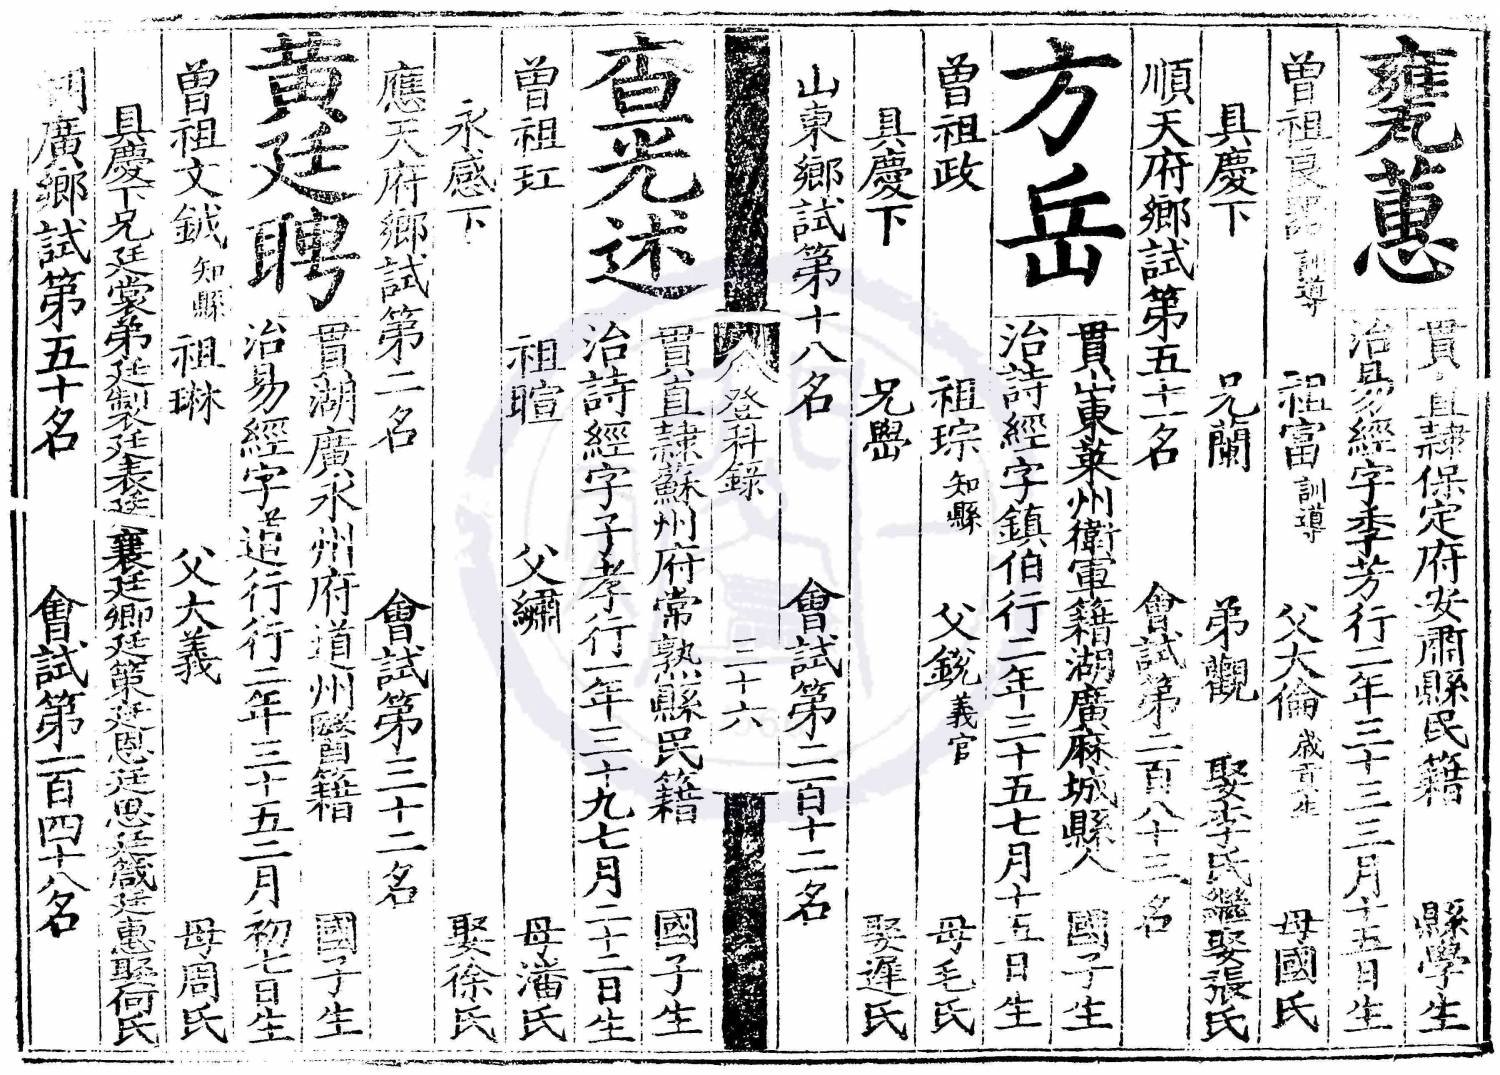 雍蕙
貫直隸保定府安肅縣民籍 縣學生
治易經字季芳行二年三十三三月十五日生
曾祖良 訓導 祖富訓導 父大倫歲貢生 母國氏
具慶下 兄蘭 弟觀 娶李氏繼娶張氏
順天府鄉試第五十一名 會試第二百八十三名
方岳
貫山東萊州衛軍籍湖廣麻城縣人 國子生
治詩經字鎮伯行二年三十五七月十五日生
曾祖政 祖琮知縣 父銳義官 母毛氏
具慶下 兄嶨 娶遲氏
山東鄉試第十八名 會試第二百十二名
登科錄 三十六
查光述
貫直隸蘇州府常熟縣民籍 國子生
治詩經字子孝行一年三十九七月二十二日生
曾祖玒 祖暄 父繡 母潘氏
永感下 娶徐氏
應天府鄉試第二名 會試第三十二名
黃廷聘
貫湖廣永州府道州醫籍 國子生
治易經字 行行二年三十五二月初七日生
曾祖文鉞知縣 祖琳 父大義 母周氏
具慶下兄廷裳弟廷製廷表廷 襄廷卿廷策廷恩廷思廷箴廷惠娶何氏
湖廣鄉試第五十名 會試第一百四十八名